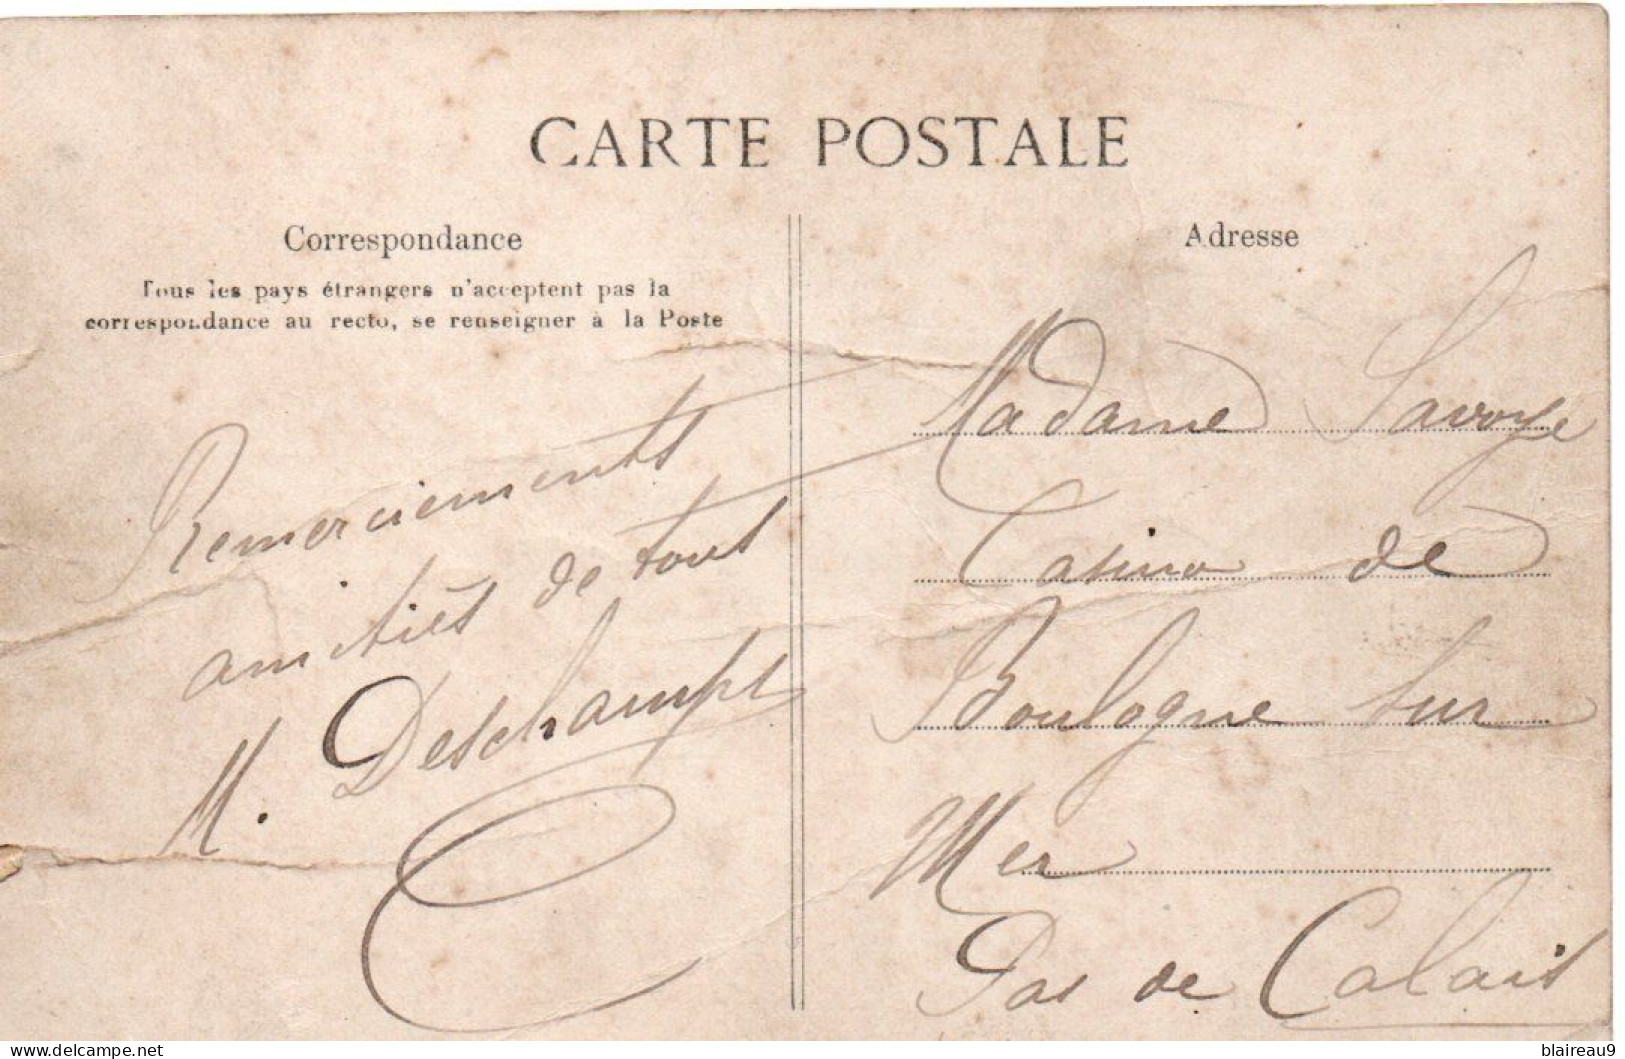 CARTE POSTALE
Correspondance
Tous les pays étrangers n'acceptent pas la
correspondance au recto, se renseigner à la Poste
Remerciements
amitiés de tous
M. Deschamps
Adresse
Madame Savoye
Casino de
Boulogne sur
Mer
Pas de Calais
delcampe.net
blaireau9